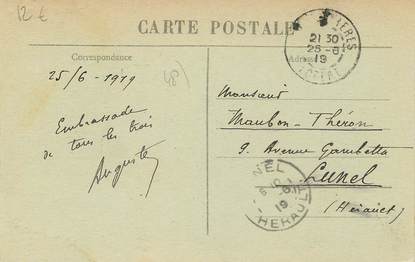 12 €
CARTE POSTALE
Correspondance
25/6-1919
Embrassade
de tous les trois
Auguste
Adresse
21 30
25-6
19
LOZÈRE
Monsieur
Maubon-Théron
9, Avenue Gambetta
Lunel
(Hérault)
NEL
19
HERAULT